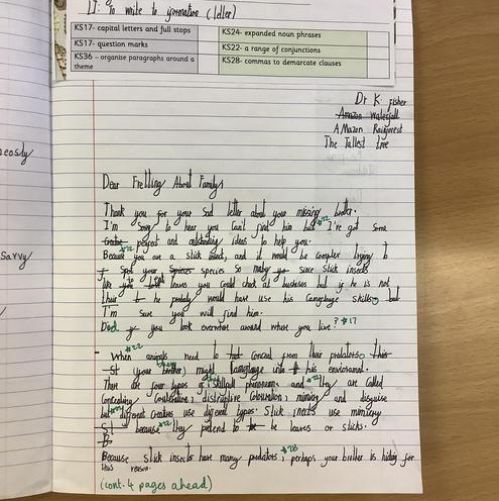 LI: To write to persuade (letter)
KS17- capital letters and full stops
KS24- expanded noun phrases
KS17- question marks
KS22- a range of conjunctions
KS36 – organise paragraphs around a theme
KS28- commas to demarcate clauses
Dr K. Fisher
Amazon
A Mazon Rainforest
The Tallest tree
Dear Fretting About Family,
Thank you for your sad letter about your missing brother.
I'm sorry to hear you can't find him but I've got some
and outstanding ideas to help you.
Because you are a stick insect, and it would be complex trying to
spot your species so many since stick insects
like leaves you could check at bushes but if he is not
there he probably would have use his camouflage skills, but
I'm sure you will find him.
Did you look everywhere around where you live? #17
#22
When animals need to conceal from their predators
(your brother) might camouflage into his enviroment.
Their are four types of and they are called
concealing colouration, disruptive colouration, mimicry and disguise
but different creatures use different types. Stick insects use mimicry
because they pretend to be leaves or sticks.
#28
Because stick insects have many predators, perhaps your brother is hiding for
this reason.
(cont. 4 pages ahead)
savvy